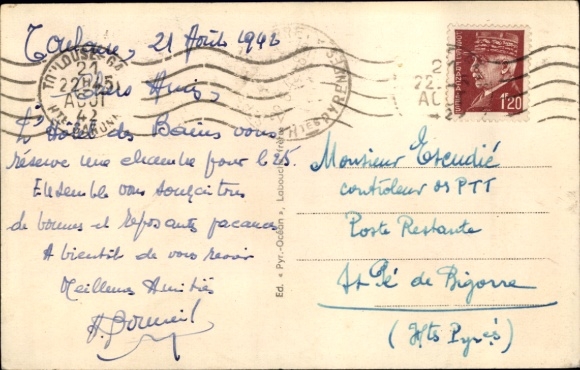 Toulouse, 21 Août 1942
TOULOUSE-GARE
22H15
21
AOUT
42
Hte GARONNE
Chers Amis,
L'Hôtel des Bains vous
réserve une chambre pour le 25.
Ensemble vous souhaitons
de bonnes et reposantes vacances
A bientôt de vous revoir
Meilleures Amitiés
A. Bonneil
Ed. « Pyr.-Océan », Labouche Frères
Htes PYRÉNÉES
1F20
Monsieur Escudié
Contrôleur des PTT
Poste Restante
St Pé de Bigorre
(Htes Pyrés)